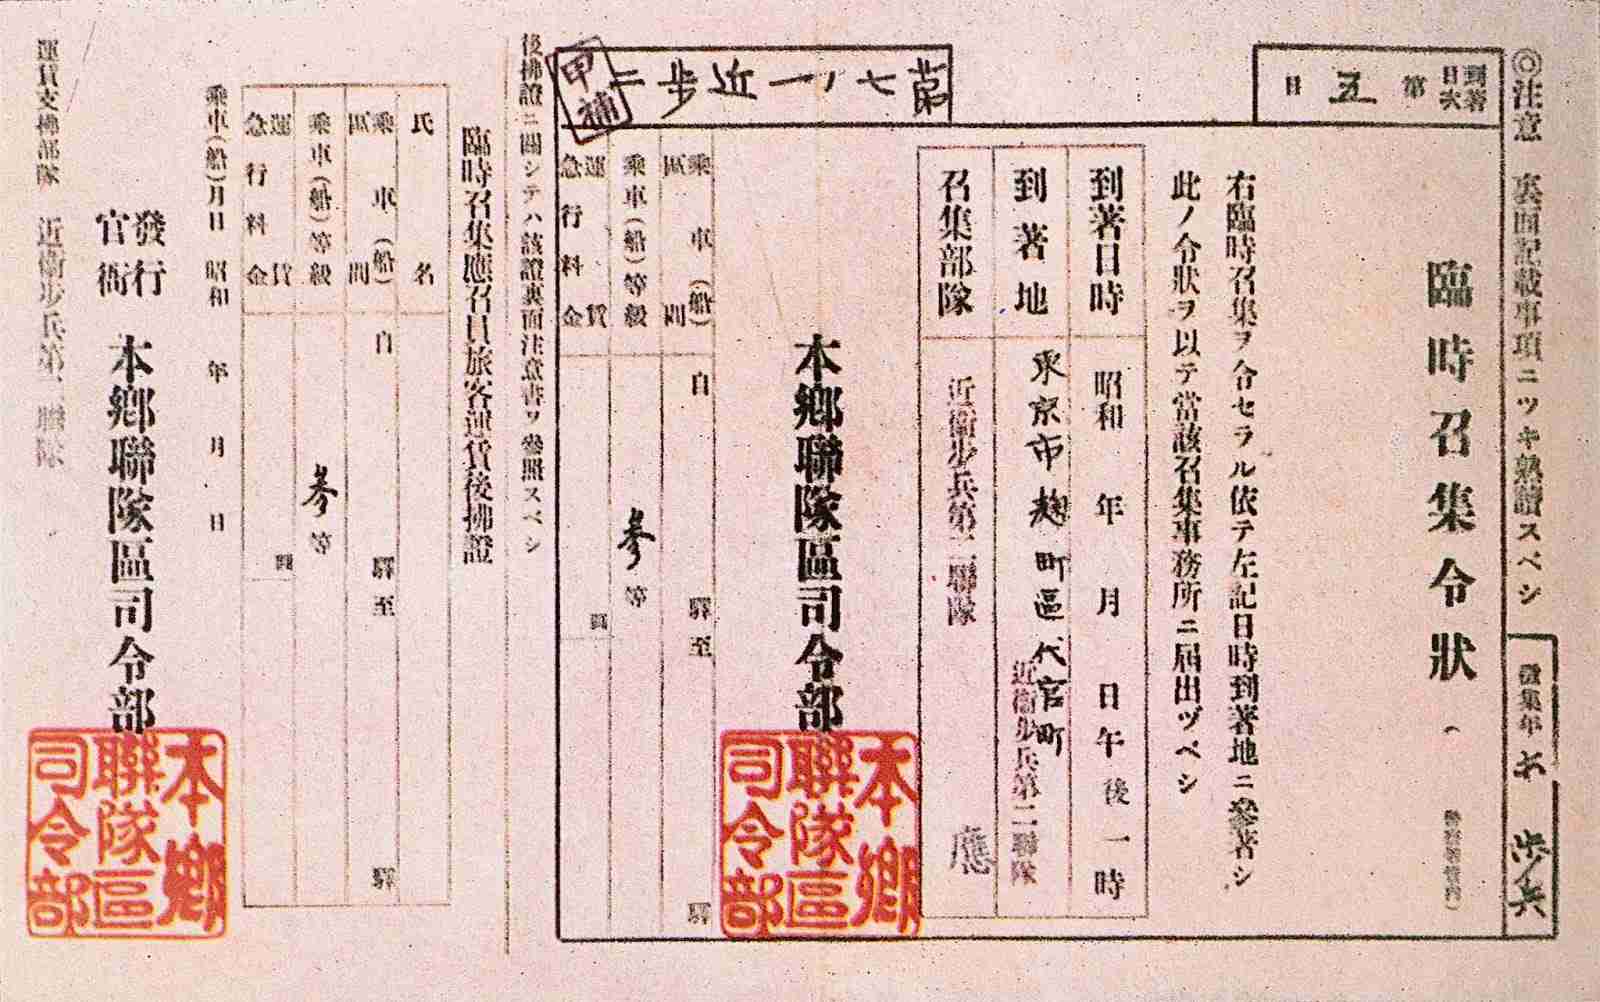 ◎注意 裏面記載事項ニツキ熟讀スベシ
徴集年 六 歩兵
到著日次 第五日
臨時召集令狀
右臨時召集ヲ令セラル依テ左記日時到著地ニ參著シ
此ノ令狀ヲ以テ當該召集事務所ニ届出ヅベシ
到著日時 昭和 年 月 日午後一時
到著地 東京市麹町區代官町 近衛歩兵第二聯隊
召集部隊 近衛歩兵第二聯隊 應
第七ノ一近歩二
甲補
本鄕聯隊區司令部
本鄕聯隊區司令部
乘車(船)區間 自 驛至 驛
乘車(船)等級 參等
運賃急行料金 圓
後拂證ニ關シテハ該證裏面注意書ヲ參照スベシ
臨時召集應召員旅客運賃後拂證
氏名
乘車(船)區間 自 驛至 驛
乘車(船)等級 參等
運賃急行料金 圓
乘車(船)月日 昭和 年 月 日
發行官衙 本鄕聯隊區司令部
本鄕聯隊區司令部
運賃支拂部隊 近衛歩兵第二聯隊